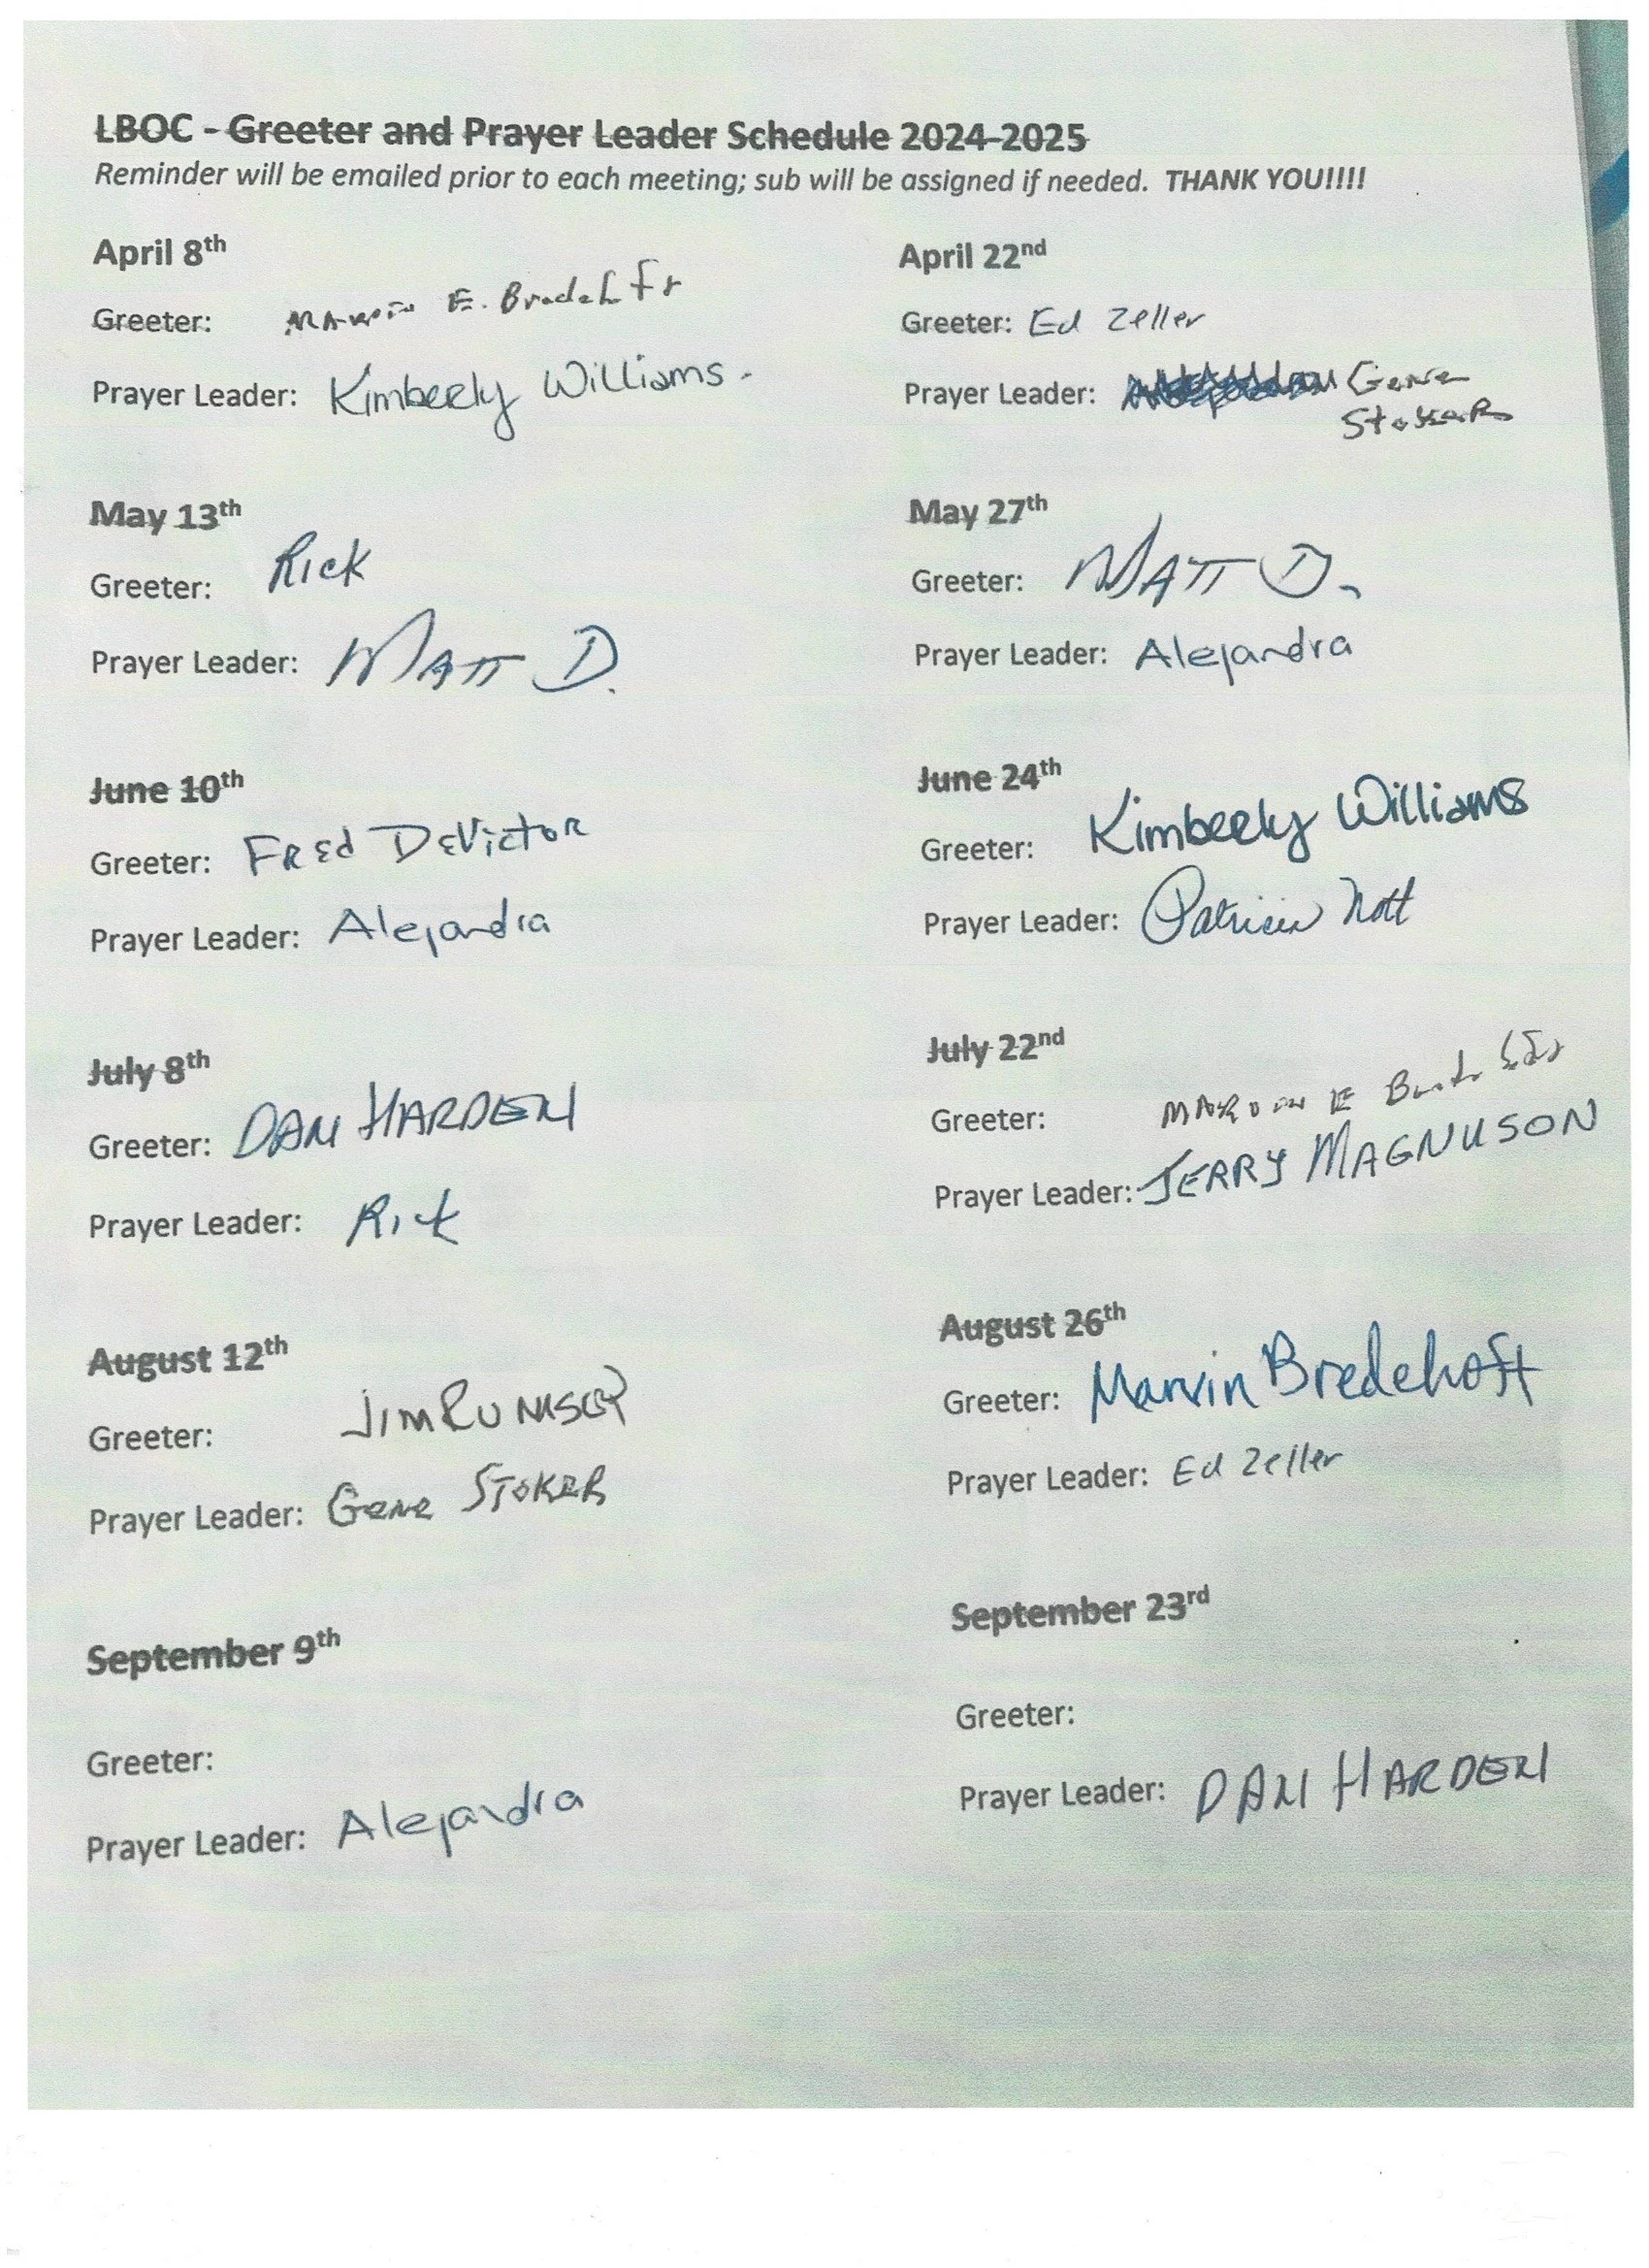 LBOC - Greeter and Prayer Leader Schedule 2024-2025
Reminder will be emailed prior to each meeting; sub will be assigned if needed. THANK YOU!!!!
April 8th
Greeter: Marvin E. Bredehft
Prayer Leader: Kimberly Williams.
April 22nd
Greeter: Ed Zeller
Prayer Leader: Gene
Stoker
May 13th
Greeter: Rick
Prayer Leader: MATT D.
May 27th
Greeter: MATT D.
Prayer Leader: Alejandra
June 10th
Greeter: FREd DEVictoR
Prayer Leader: Alejandra
June 24th
Greeter: Kimberly Williams
Prayer Leader: Patricia Nott
July 8th
Greeter: DAN HARDEN
Prayer Leader: Rick
July 22nd
Greeter: MARVIN E
Prayer Leader: JERRY MAGNUSON
August 12th
Greeter: JIM
Prayer Leader: Gene STOKER
August 26th
Greeter: Marvin Bredehoft
Prayer Leader: Ed Zeller
September 9th
Greeter:
Prayer Leader: Alejandra
September 23rd
Greeter:
Prayer Leader: DAN HARDEN